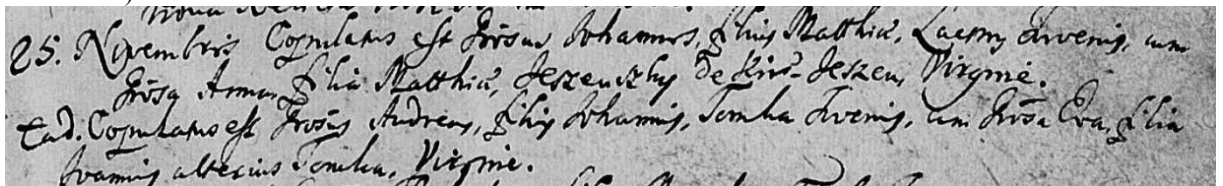 25. Novembris Copulatus est Grōsus Johannes, filius Matthiæ, Lacny Juvenis, cum
Grōsa Anna, filia Matthiæ, Jeszenszky de Kis-Jeszen, Virgine.
Ead. Copulatus est Grōsus Andreas, filius Johannis, Tomka Juvenis, cum Grōsa Eva, filia
Joannis alterius Tomka, Virgine.